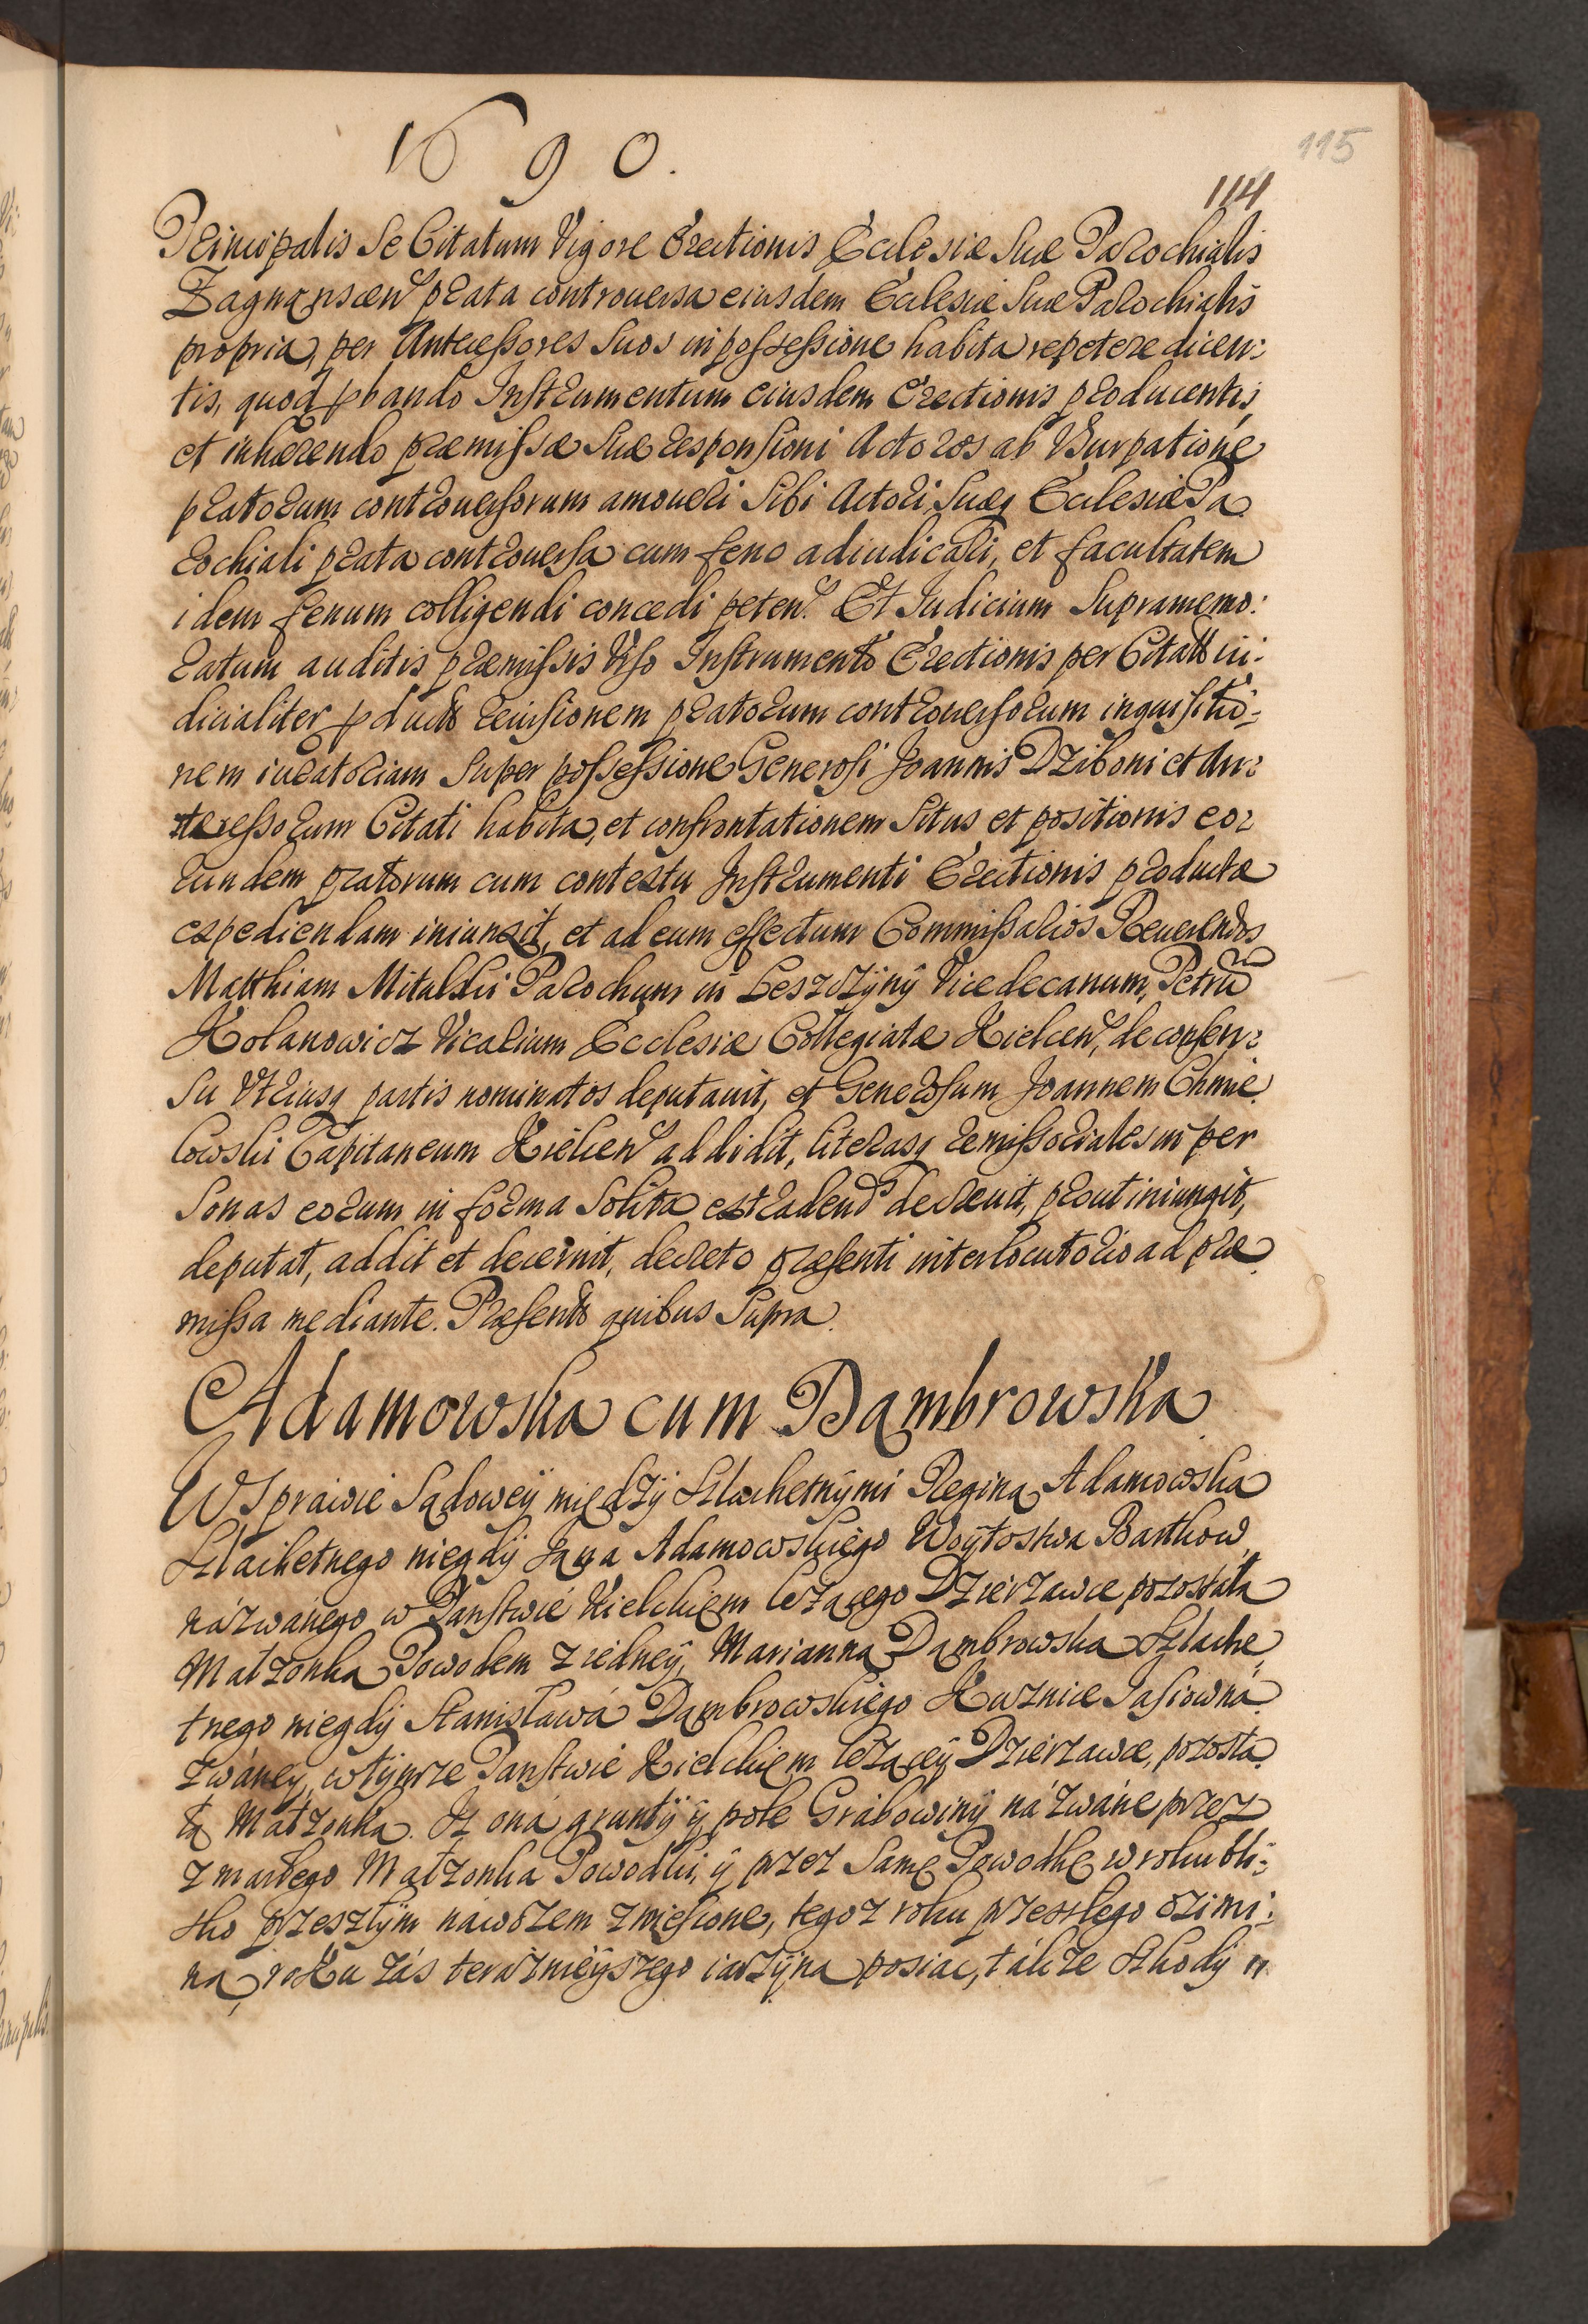 1690.
115
114
Principalis Se Citatum Vigore Erectionis Ecclesiæ Suæ Parochialis
Zagnansceñ prata controuersa eiusdem Ecclesiæ Suæ Parochialis
propria, per Antecessores Suos in possessione habita repetere dicen:
tis, quod pbando Instrumentum eiusdem Erectionis producentis,
et inhærendo præmissæ Suæ responsioni Actores ab Vsurpatione
pratorum controuersorum amoueri Sibi Actori, Suæq Ecclesiæ Pa
rochiali prata controuersa cum feno adiudicari, et facultatem
idem fenum colligendi concedi peteñ. Et Iudicium Supramemo:
ratum auditis præmissis Viso Instrumento Erectionis per Citatũ iu:
dicialiter pducto reuisionem pratorum controuersorum inquisitio:
nem iuratoriam Super possessione Generosi Joannis Dziboni et An:
tecessorum Citati habita, et confrontationem Situs et positionis eo:
rundem pratorum cum contextu Instrumenti Erectionis producta
expediendam iniunxit, et ad eum effectum Commissarios Reuerendos
Matthiam Mitalski Parochum in Leszczÿnÿ Vicedecanum, Petrũ
Kolanowicz Vicarium Ecclesiæ Collegiatæ Kielceñ, de consen:
su Vtriusq partis nominatos deputauit, et Generosum Joannem Chmie
lowski Capitaneum Kielceñ addidit, literasq remissoriales in per
sonas eorum in forma Solita extradend decreuit, prout iniungit,
deputat, addit et decernit, decreto præsenti interlocutorio ad præ
missa mediante. Præsentt quibus Supra.
Adamowska cum Dąmbrowska
W Sprawie Sądoweÿ międzÿ Szlachetnÿmi Reginą Adamowską
Szlachetnego niegdÿ Jana Adamowskiego Woÿtostwa Bartkow
názwánego w Panstwie Kielckiem leżącego Dzierzawce pozostáłą
Małzonką Powodem z iedneÿ, Marianną Dąmbrowską Szláche
tnego niegdÿ Stanisławá Dąmbrowskiego Kuznice Jasiow ná
zwáney, w tÿmże Panstwie Kielckiem leżąceÿ Dzierzawce, pozosta
łą Małzonką. Iż oná gruntÿ ÿ pole Grábowinÿ názwáne przez
zmarłego Małzonka Powodki, ÿ przez Samę Powodkę w roku bli:
sko przeszłÿm náwozem zwiesione, tegoż roku przeszłego ozimi:
ną, roku zás teraznieÿszego iarzÿną posiac, tákze Szkodÿ w